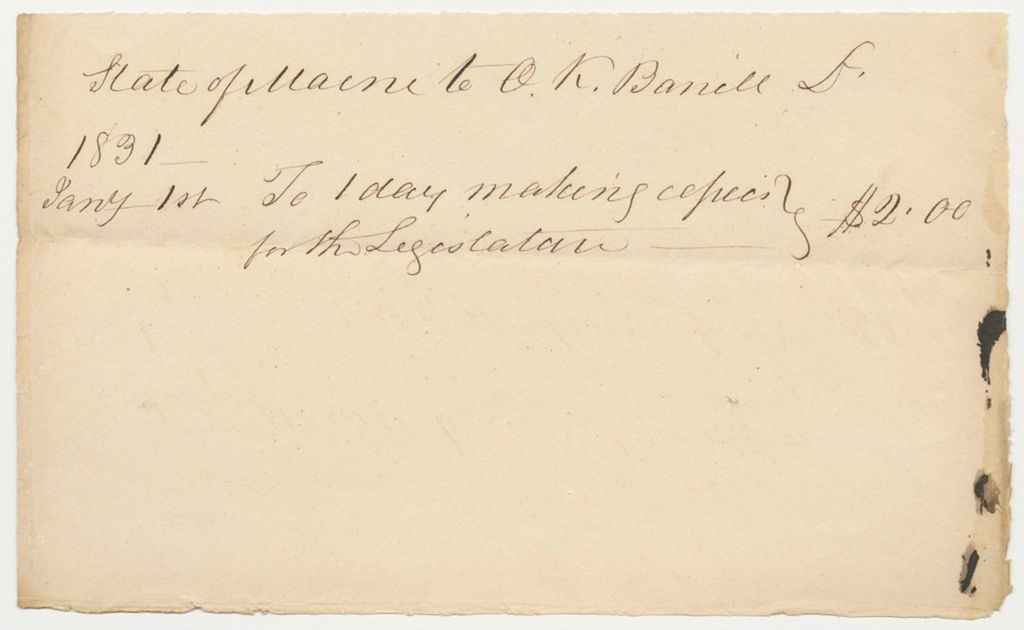 State of Maine to O. K. Barrell Dr
1831
Jany 1st To 1 day making copies $2.00
for the Legislature